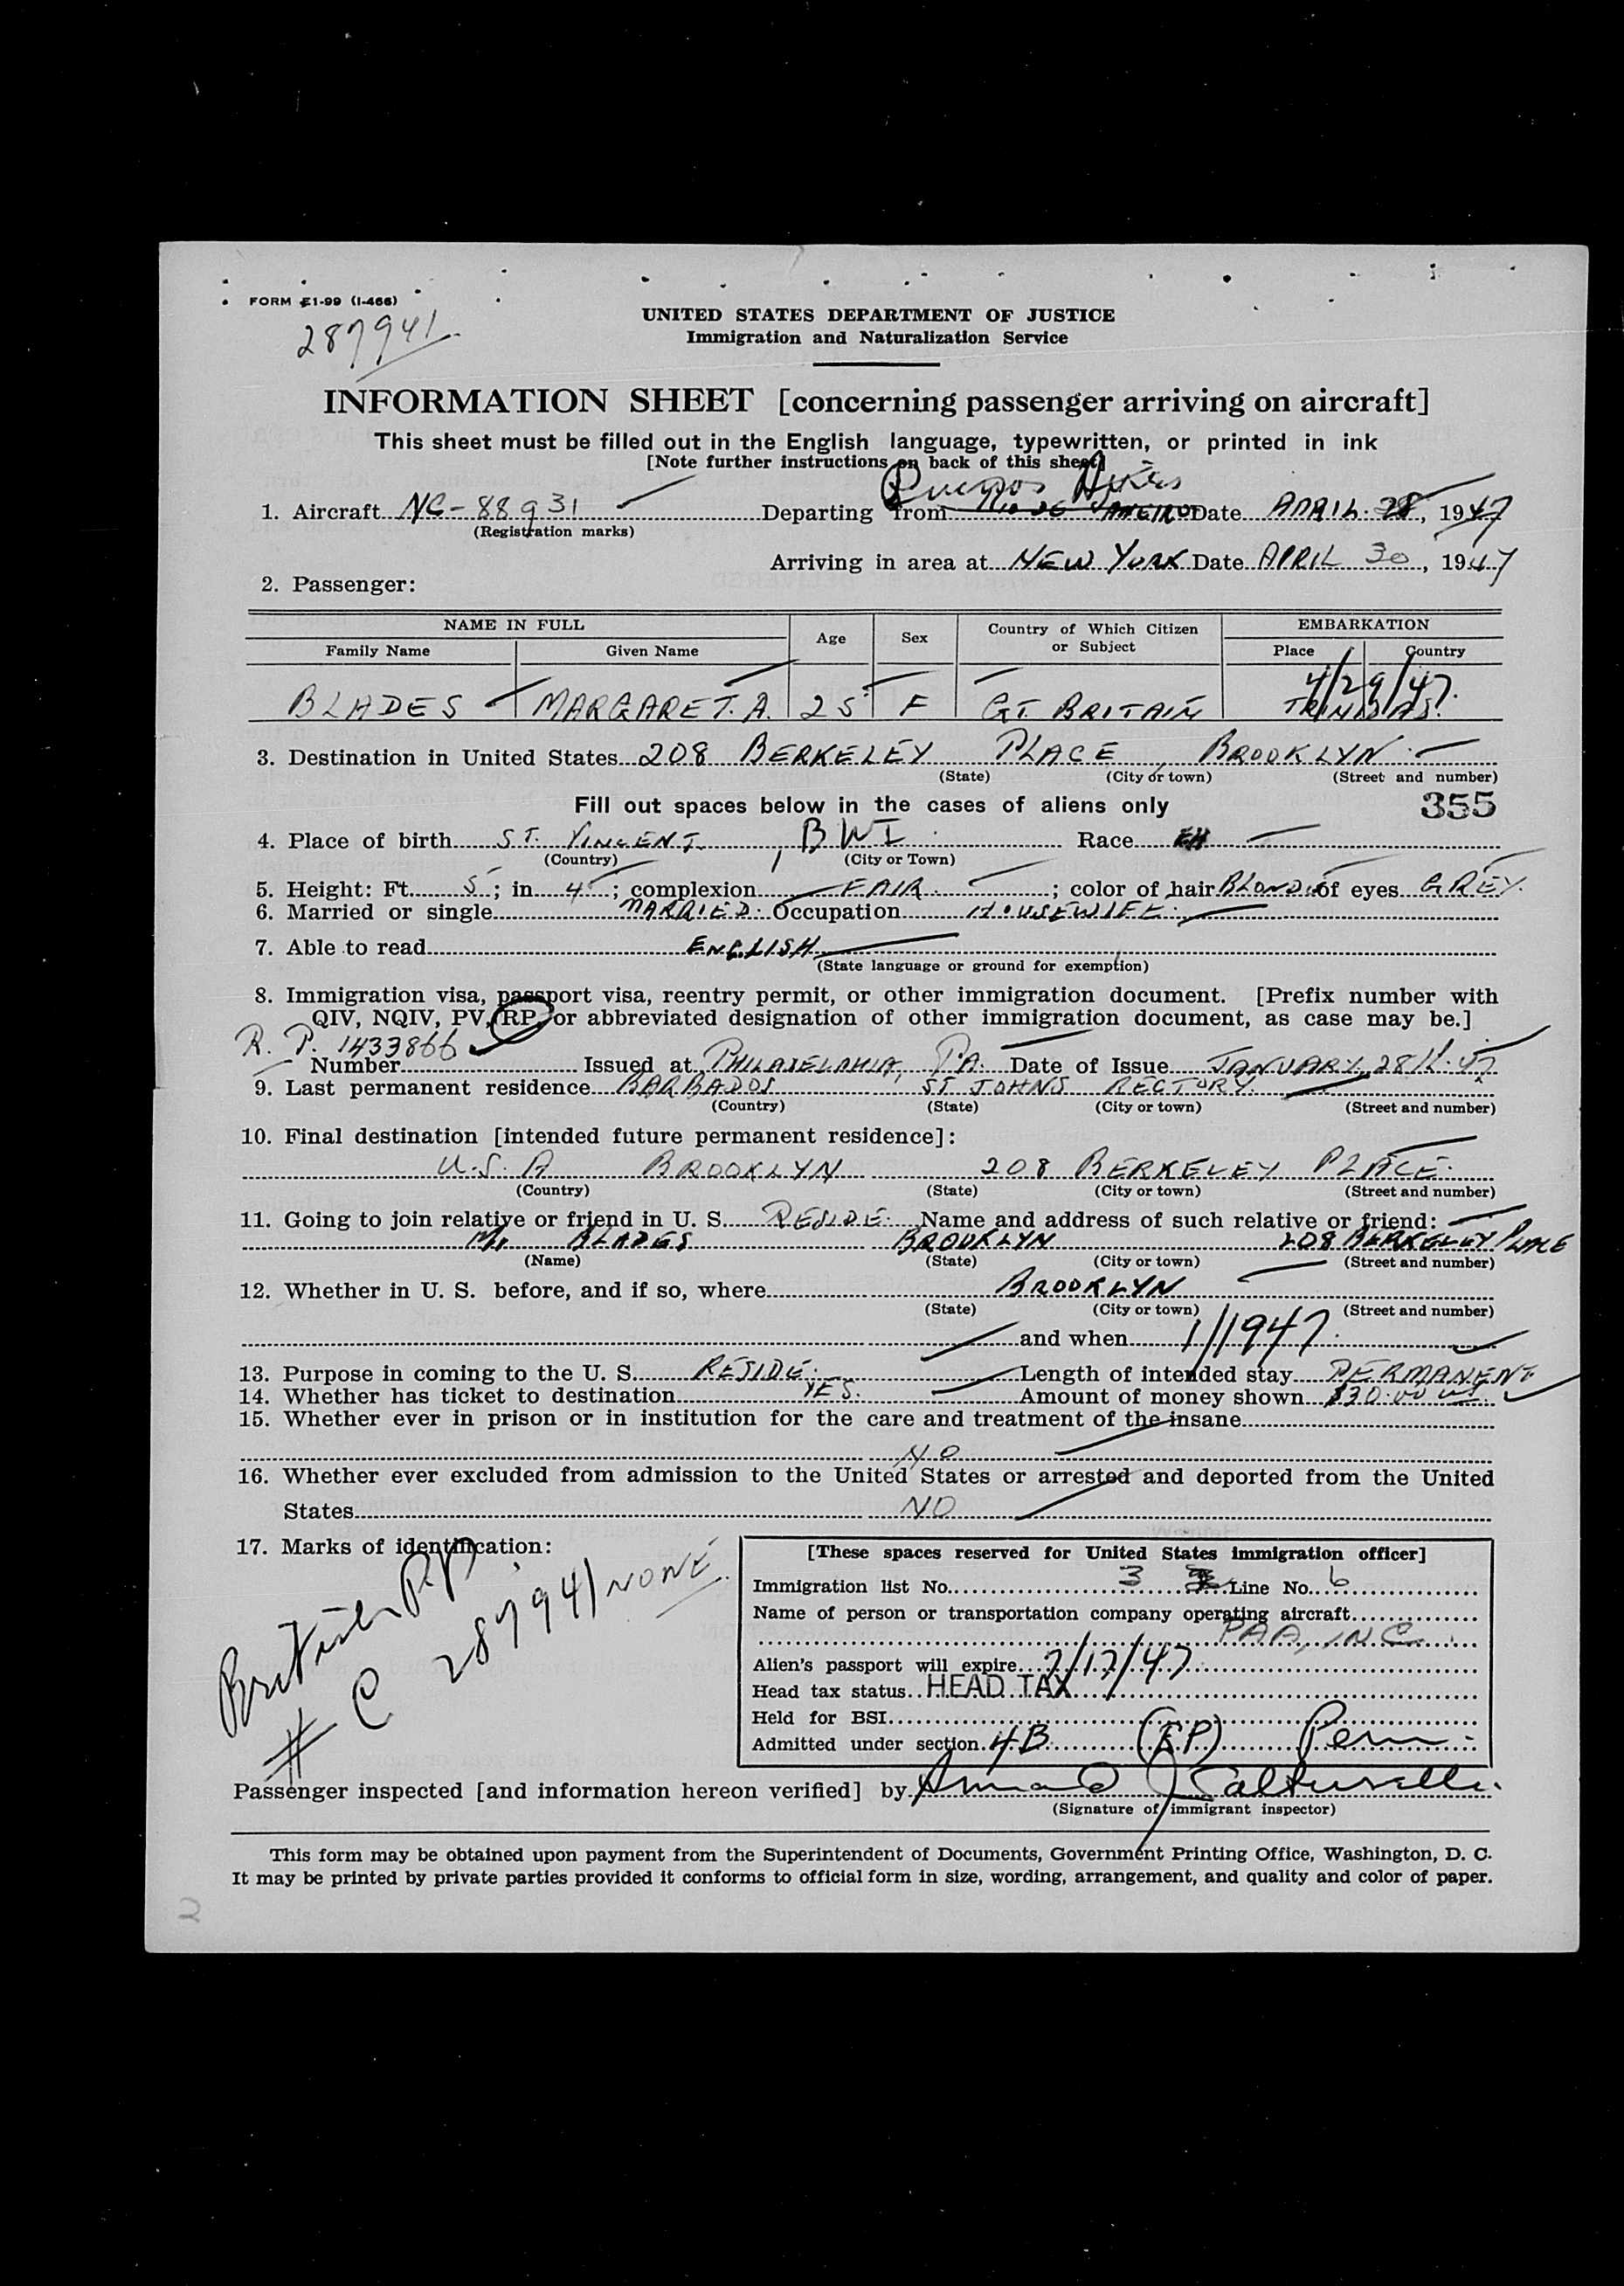 FORM E1-99 (I-466)
287941
UNITED STATES DEPARTMENT OF JUSTICE
Immigration and Naturalization Service
INFORMATION SHEET [concerning passenger arriving on aircraft]
This sheet must be filled out in the English language, typewritten, or printed in ink
[Note further instructions on back of this sheet]
Buenos Aires
1. Aircraft NC-88931 Departing from Date APRIL 28, 1947
(Registration marks)
Arriving in area at NEW YORK Date APRIL 30, 1947
2. Passenger:
NAME IN FULL Age Sex Country of Which Citizen or Subject EMBARKATION
Family Name Given Name Place Country
4/29/47.
BLADES MARGARET. A. 25 F GT. BRITAIN TRINIDAD.
3. Destination in United States 208 BERKELEY PLACE BROOKLYN.
(State) (City or town) (Street and number)
Fill out spaces below in the cases of aliens only 355
4. Place of birth ST. VINCENT, BWI Race
(Country) (City or Town)
5. Height: Ft. 5; in 4; complexion FAIR; color of hair BLOND; of eyes GREY.
6. Married or single MARRIED. Occupation HOUSEWIFE.
7. Able to read ENGLISH
(State language or ground for exemption)
8. Immigration visa, passport visa, reentry permit, or other immigration document. [Prefix number with
QIV, NQIV, PV, RP, or abbreviated designation of other immigration document, as case may be.]
R. P. 1433866
Number Issued at PHILADELPHIA, PA. Date of Issue JANUARY 28 47
9. Last permanent residence BARBADOS ST JOHNS RECTORY.
(Country) (State) (City or town) (Street and number)
10. Final destination [intended future permanent residence]:
U.S.A BROOKLYN 208 BERKELEY PLACE.
(Country) (State) (City or town) (Street and number)
11. Going to join relative or friend in U. S. RESIDE. Name and address of such relative or friend:
Mr BLADES BROOKLYN 208 BERKELEY PLACE
(Name) (State) (City or town) (Street and number)
12. Whether in U. S. before, and if so, where BROOKLYN
(State) (City or town) (Street and number)
and when 1/1947.
13. Purpose in coming to the U. S. RESIDE. Length of intended stay PERMANENT
14. Whether has ticket to destination YES. Amount of money shown $30.00 US.
15. Whether ever in prison or in institution for the care and treatment of the insane
NO
16. Whether ever excluded from admission to the United States or arrested and deported from the United
States NO
17. Marks of identification:
NONE.
British P.P.
# C 287941
[These spaces reserved for United States immigration officer]
Immigration list No. 3 Line No. 6
Name of person or transportation company operating aircraft
PAA, INC.
Alien's passport will expire 7/17/47
Head tax status HEAD TAX
Held for BSI
Admitted under section 4B (EP) Perm.
Passenger inspected [and information hereon verified] by
(Signature of immigrant inspector)
This form may be obtained upon payment from the Superintendent of Documents, Government Printing Office, Washington, D. C.
It may be printed by private parties provided it conforms to official form in size, wording, arrangement, and quality and color of paper.
2